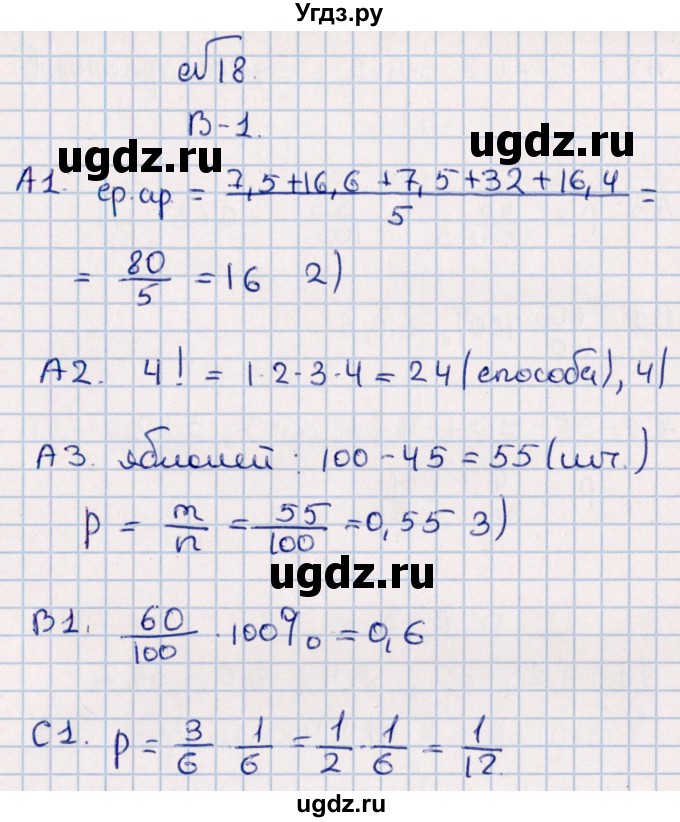 Угдз.ру
№18.
В-1.
ugdz.ru ugdz.ru
А1. ср.ар. = 7,5+16,6+7,5+32+16,4 / 5 =
= 80/5 = 16 2)
ugdz.ru
А2. 4! = 1·2·3·4 = 24 (способа), 4)
ugdz.ru
А3. яблоней : 100 - 45 = 55 (шт.)
p = m/n = 55/100 = 0,55 3)
ugdz.ru
В1. 60/100 · 100% = 0,6
ugdz.ru
С1. p = 3/6 · 1/6 = 1/2 · 1/6 = 1/12.
ugdz.ru